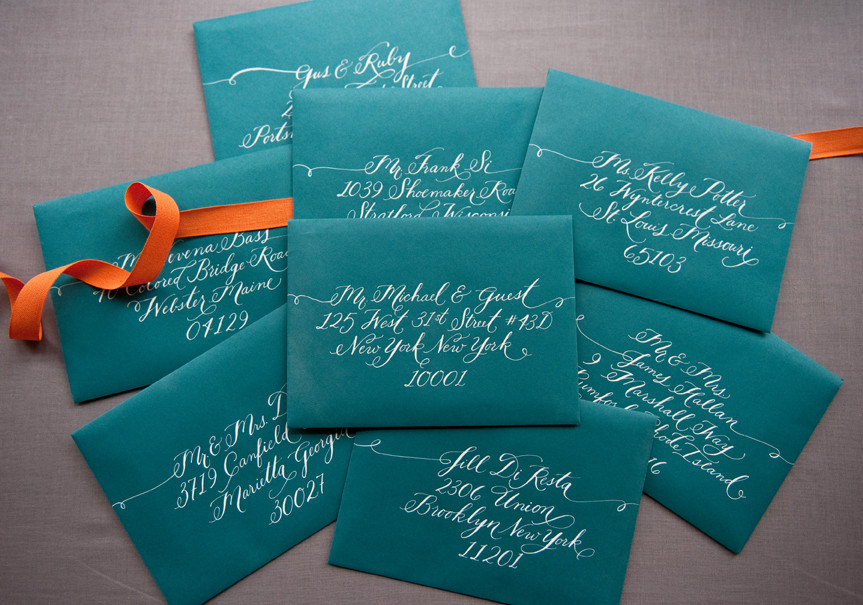 Gus & Ruby
Street
Ports
Mr. Frank Si
1039 Shoemaker Roa
Stratford Wisconsi
Ms. Kelly Potter
26 Wyntercrest Lane
St Louis Missouri
65103
evena Bass
Colored Bridge Road
Webster Maine
04129
Mr. Michael & Guest
125 West 31st Street #43D
New York New York
10001
Mr & Mrs
James Hallan
9 Marshall Way
Rhode Island
16
Mr & Mrs D
3719 Canfield
Marietta Georgia
30027
Jill Di Rosta
2306 Union
Brooklyn New York
11201